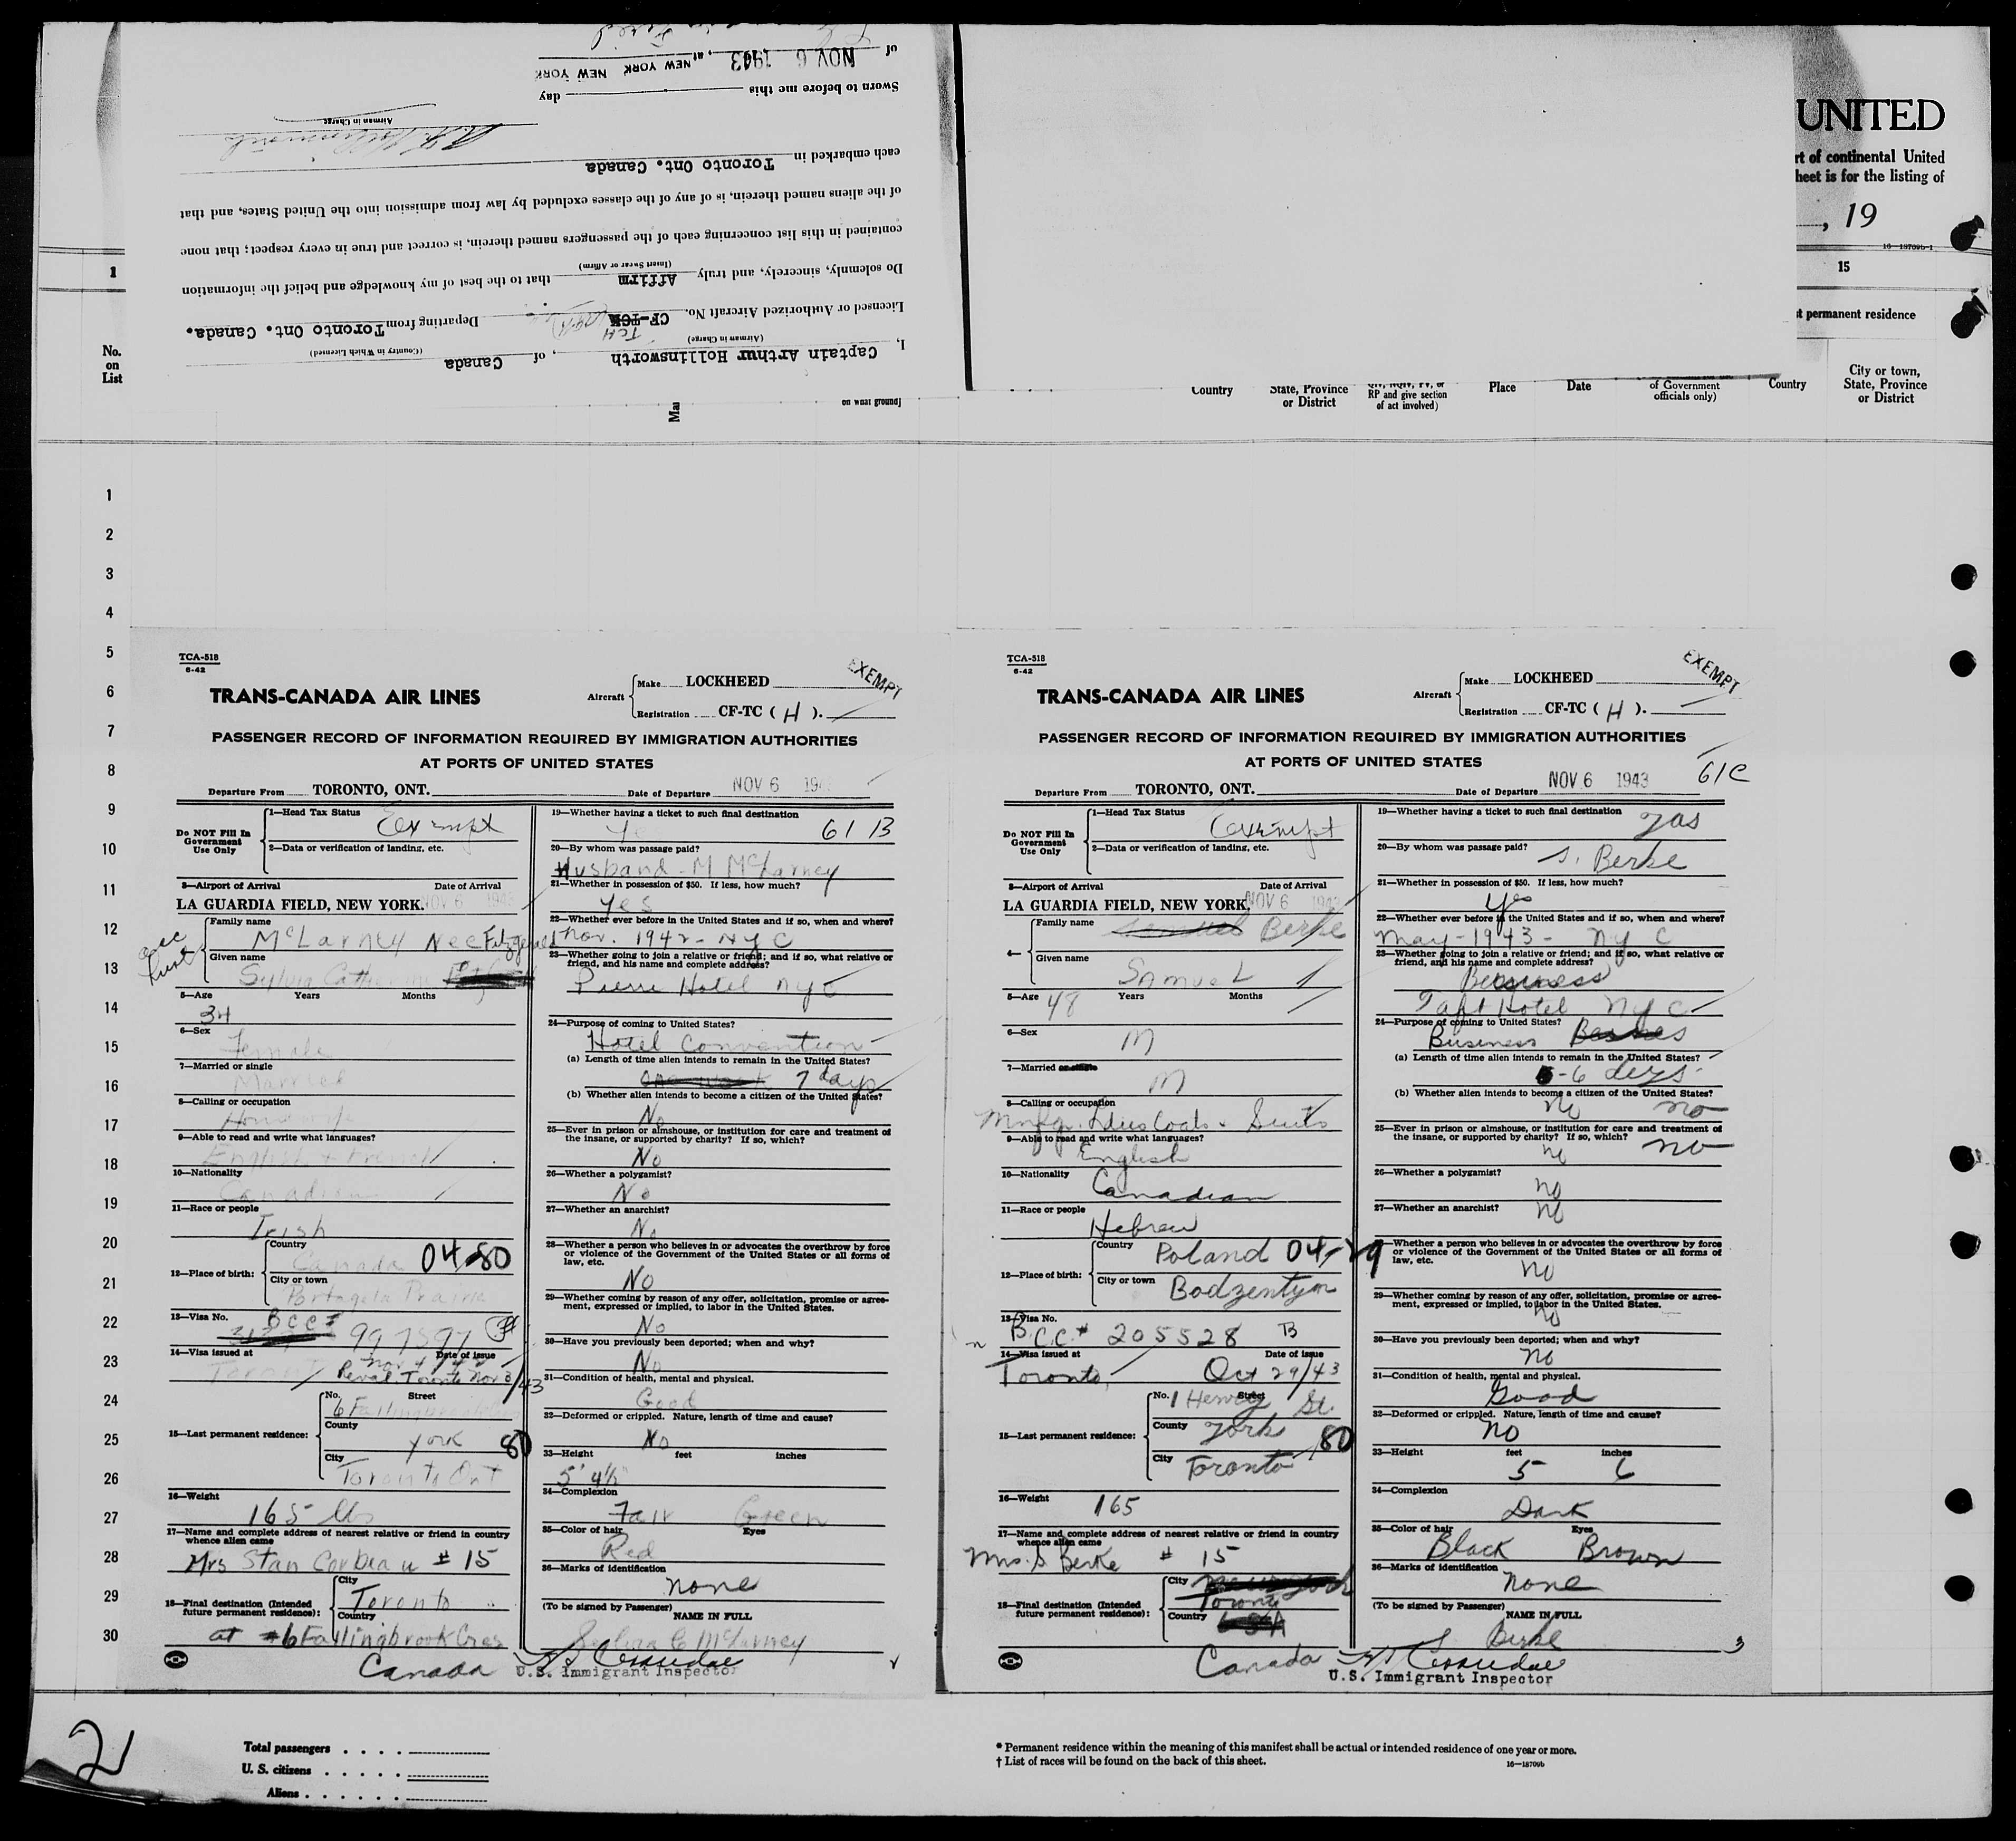 UNITED
rt of continental United
heet is for the listing of
, 19
16—18709b-1
15
t permanent residence
City or town,
State, Province
or District
Country
of Government
officials only)
Date
Place
RP and give section
of act involved)
State, Province
or District
Country
1
No.
on
List
I, Captain Arthur Hollinsworth, of Canada
(Airman in Charge) (Country in Which Licensed)
TCH
Licensed or Authorized Aircraft No. CF-TCH Departing from Toronto Ont. Canada.
Do solemnly, sincerely, and truly Affirm that to the best of my knowledge and belief the information
(Insert Swear or Affirm)
contained in this list concerning each of the passengers named therein, is correct and true in every respect; that none
of the aliens named therein, is of any of the classes excluded by law from admission into the United States, and that
each embarked in Toronto Ont. Canada
Airman in Charge
Sworn to before me this day
of NOV 6 1943, at NEW YORK NEW YORK
1
2
3
4
5
6
7
8
9
10
11
12
13
14
15
16
17
18
19
20
21
22
23
24
25
26
27
28
29
30
TCA-518
6-42
TRANS-CANADA AIR LINES
Aircraft Make LOCKHEED
Registration CF-TC ( H ).
EXEMPT
PASSENGER RECORD OF INFORMATION REQUIRED BY IMMIGRATION AUTHORITIES
AT PORTS OF UNITED STATES
Departure From TORONTO, ONT. Date of Departure NOV 6 194
Do NOT Fill In
Government
Use Only
1—Head Tax Status
Exempt
2—Data or verification of landing, etc.
3—Airport of Arrival Date of Arrival
LA GUARDIA FIELD, NEW YORK. NOV 6 1943
Family name
McLarney Nee Fitzgerald
Given name
Sylvia Catherine
5—Age Years Months
34
6—Sex
Female
7—Married or single
Married
8—Calling or occupation
9—Able to read and write what languages?
English & French
10—Nationality
Canadian
11—Race or people
Irish
12—Place of birth:
Country
Canada 04-80
City or town
Portage la Prairie
13—Visa No.
BCC# 997597
14—Visa issued at Date of issue
Toronto Nov 4/42
Reval. Toronto Nov 3/43
15—Last permanent residence:
No. Street
6 Fallingbrook
County
York 80
City
Toronto Ont
16—Weight
165 lbs
17—Name and complete address of nearest relative or friend in country
whence alien came
Mrs Stan Corbeau # 15
18—Final destination (Intended
future permanent residence):
City
Toronto
Country
at #6 Fallingbrook Cres
Canada
19—Whether having a ticket to such final destination
Yes 61 B
20—By whom was passage paid?
Husband - M McLarney
21—Whether in possession of $50. If less, how much?
Yes
22—Whether ever before in the United States and if so, when and where?
Nov. 1942 - NYC
23—Whether going to join a relative or friend; and if so, what relative or
friend, and his name and complete address?
Pierre Hotel NYC
24—Purpose of coming to United States?
Hotel Convention
(a) Length of time alien intends to remain in the United States?
7 days
(b) Whether alien intends to become a citizen of the United States?
No
25—Ever in prison or almshouse, or institution for care and treatment of
the insane, or supported by charity? If so, which?
No
26—Whether a polygamist?
No
27—Whether an anarchist?
No
28—Whether a person who believes in or advocates the overthrow by force
or violence of the Government of the United States or all forms of
law, etc.
No
29—Whether coming by reason of any offer, solicitation, promise or agree-
ment, expressed or implied, to labor in the United States.
No
30—Have you previously been deported; when and why?
No
31—Condition of health, mental and physical.
Good
32—Deformed or crippled. Nature, length of time and cause?
No
33—Height feet inches
5' 4½"
34—Complexion
Fair Green
35—Color of hair Eyes
Red
36—Marks of identification
none
(To be signed by Passenger)
NAME IN FULL
Sylvia C McLarney
U.S. Immigrant Inspector
TCA-518
6-42
TRANS-CANADA AIR LINES
Aircraft Make LOCKHEED
Registration CF-TC ( H ).
EXEMPT
PASSENGER RECORD OF INFORMATION REQUIRED BY IMMIGRATION AUTHORITIES
AT PORTS OF UNITED STATES
61C
Departure From TORONTO, ONT. Date of Departure NOV 6 1943
Do NOT Fill In
Government
Use Only
1—Head Tax Status
Exempt
2—Data or verification of landing, etc.
3—Airport of Arrival Date of Arrival
LA GUARDIA FIELD, NEW YORK. NOV 6 1943
4—
Family name
Samuel Berke
Given name
Samuel
5—Age 48 Years Months
6—Sex
M
7—Married or single
M
8—Calling or occupation
Mnfgr. Ldies Coats & Suits
9—Able to read and write what languages?
English
10—Nationality
Canadian
11—Race or people
Hebrew
12—Place of birth:
Country
Poland 04-29
City or town
Bodzentyn
13—Visa No.
B.C.C.# 205528 B
14—Visa issued at Date of issue
Toronto, Oct 29/43
15—Last permanent residence:
No. 1 Street
St.
County
York 80
City
Toronto
16—Weight
165
17—Name and complete address of nearest relative or friend in country
whence alien came
Mrs. S Berke # 15
18—Final destination (Intended
future permanent residence):
City
New York
Toronto
Country
USA
Canada
19—Whether having a ticket to such final destination
yes
20—By whom was passage paid?
S. Berke
21—Whether in possession of $50. If less, how much?
Yes
22—Whether ever before in the United States and if so, when and where?
May - 1943 - NYC
23—Whether going to join a relative or friend; and if so, what relative or
friend, and his name and complete address?
Business
Taft Hotel NYC
24—Purpose of coming to United States?
Business
(a) Length of time alien intends to remain in the United States?
5-6 days
(b) Whether alien intends to become a citizen of the United States?
no no
25—Ever in prison or almshouse, or institution for care and treatment of
the insane, or supported by charity? If so, which?
no no
26—Whether a polygamist?
no
27—Whether an anarchist?
no
28—Whether a person who believes in or advocates the overthrow by force
or violence of the Government of the United States or all forms of
law, etc.
no
29—Whether coming by reason of any offer, solicitation, promise or agree-
ment, expressed or implied, to labor in the United States.
no
30—Have you previously been deported; when and why?
no
31—Condition of health, mental and physical.
Good
32—Deformed or crippled. Nature, length of time and cause?
no
33—Height feet inches
5 6
34—Complexion
Dark
35—Color of hair Eyes
Black Brown
36—Marks of identification
none
(To be signed by Passenger)
NAME IN FULL
S Berke
3
U.S. Immigrant Inspector
21
Total passengers
U. S. citizens
Aliens
* Permanent residence within the meaning of this manifest shall be actual or intended residence of one year or more.
† List of races will be found on the back of this sheet.
16—18709b